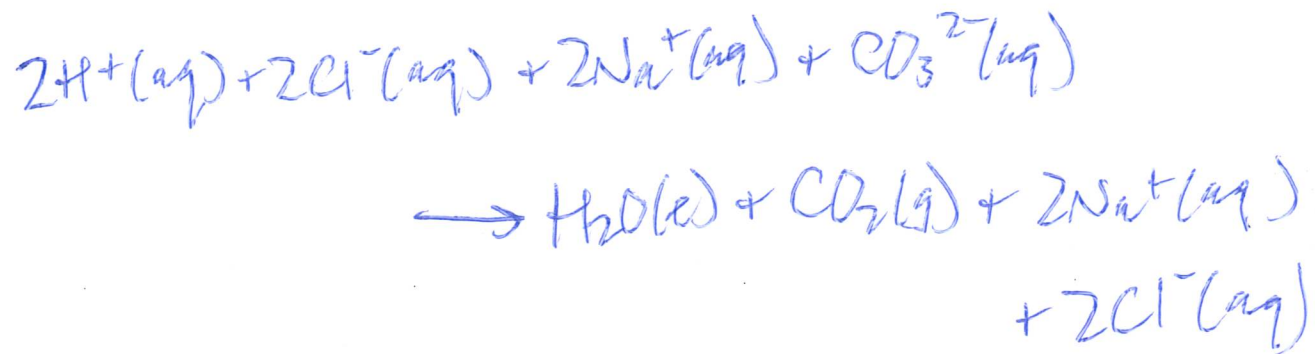 2H⁺(aq) + 2Cl⁻(aq) + 2Na⁺(aq) + CO₃²⁻(aq)
⟶ H₂O(ℓ) + CO₂(g) + 2Na⁺(aq)
+ 2Cl⁻(aq)